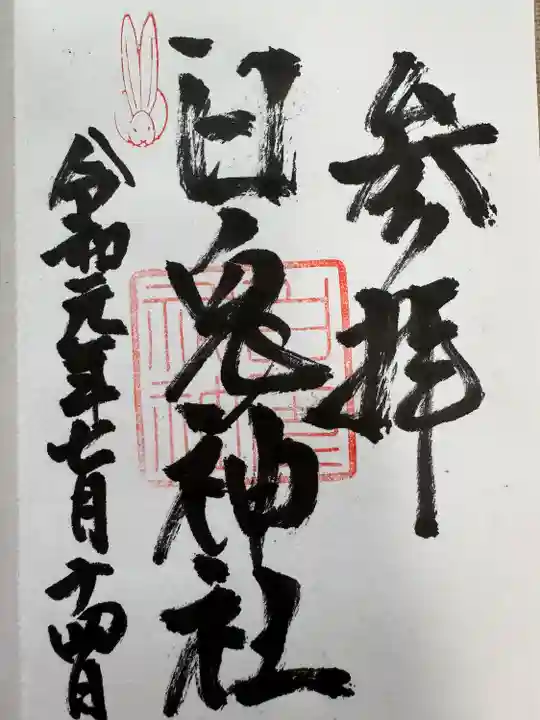 参拝
白兔神社
令和元年七月十四日